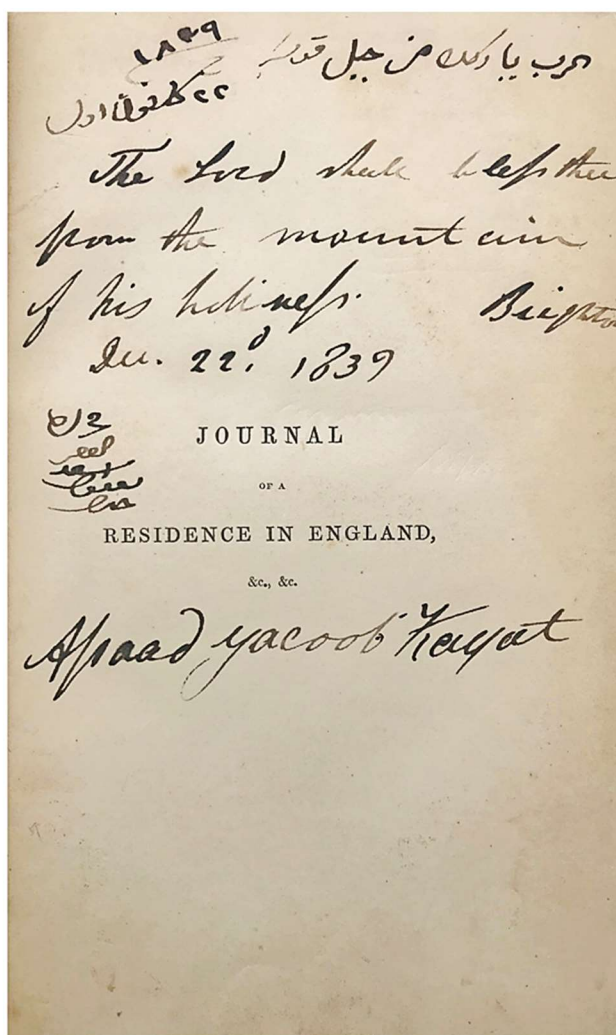 الرب يباركك من جبل قدسه ١٨٣٩
٢٢ كانون اول
The Lord shall bleſs thee
from the mountain
of his holineſs. Brighton
Dec. 22d. 1839
JOURNAL
OF A
RESIDENCE IN ENGLAND,
&c., &c.
Aſsaad yacoob Kayat